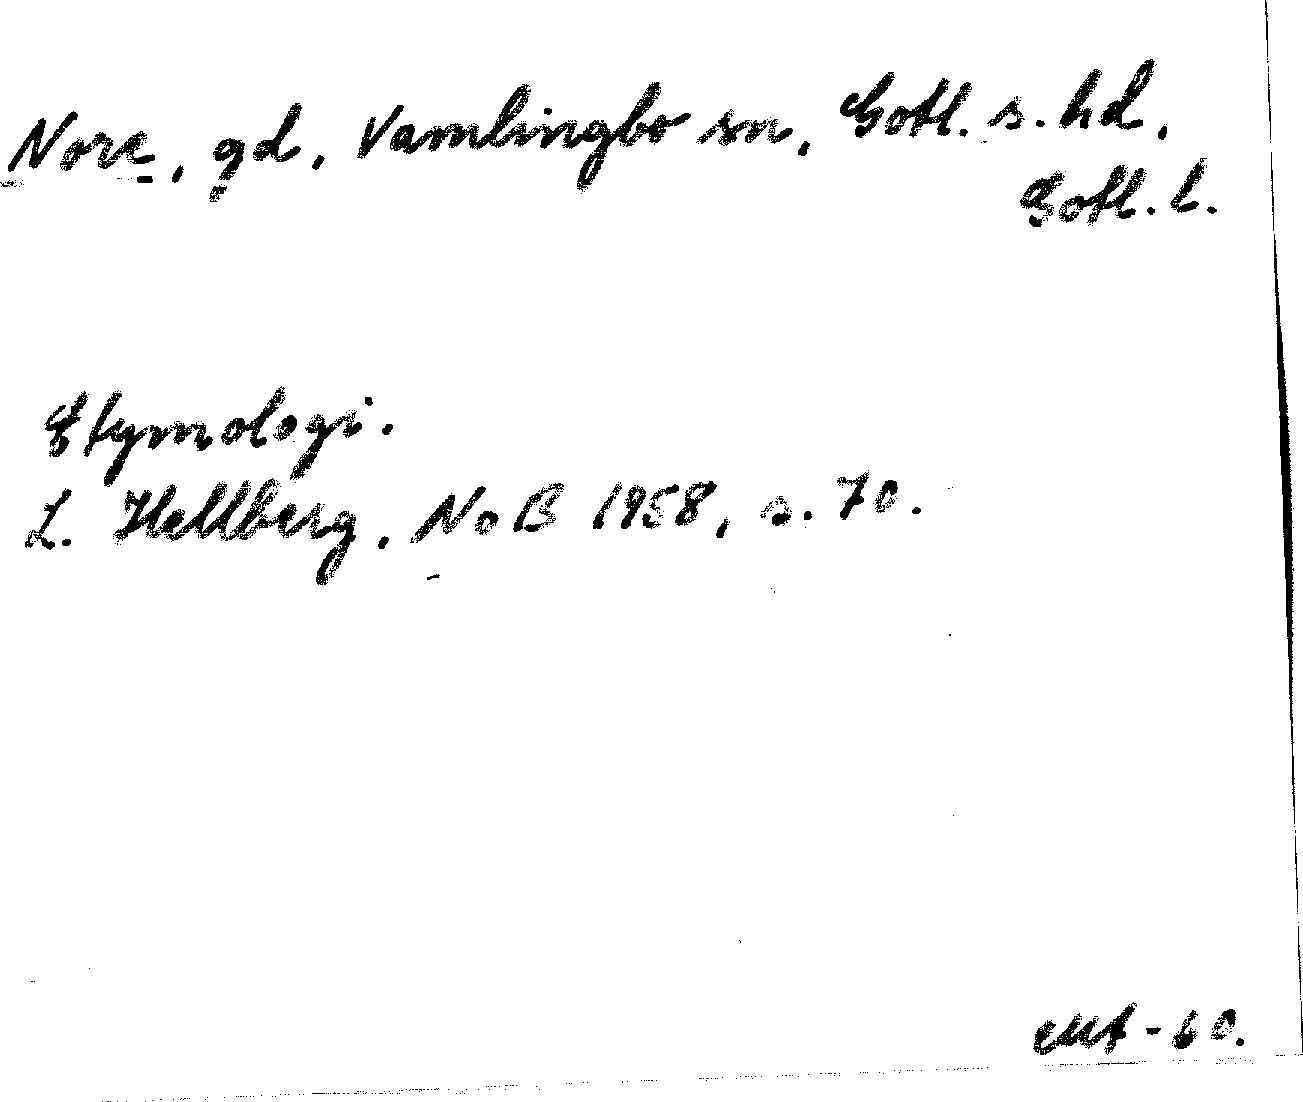 Nore, gd, Vamlingbo sn, Gotl. s. hd,
Gotl. l.
Etymologi.
L. Hellberg, NoB 1958, s. 70.
-60.